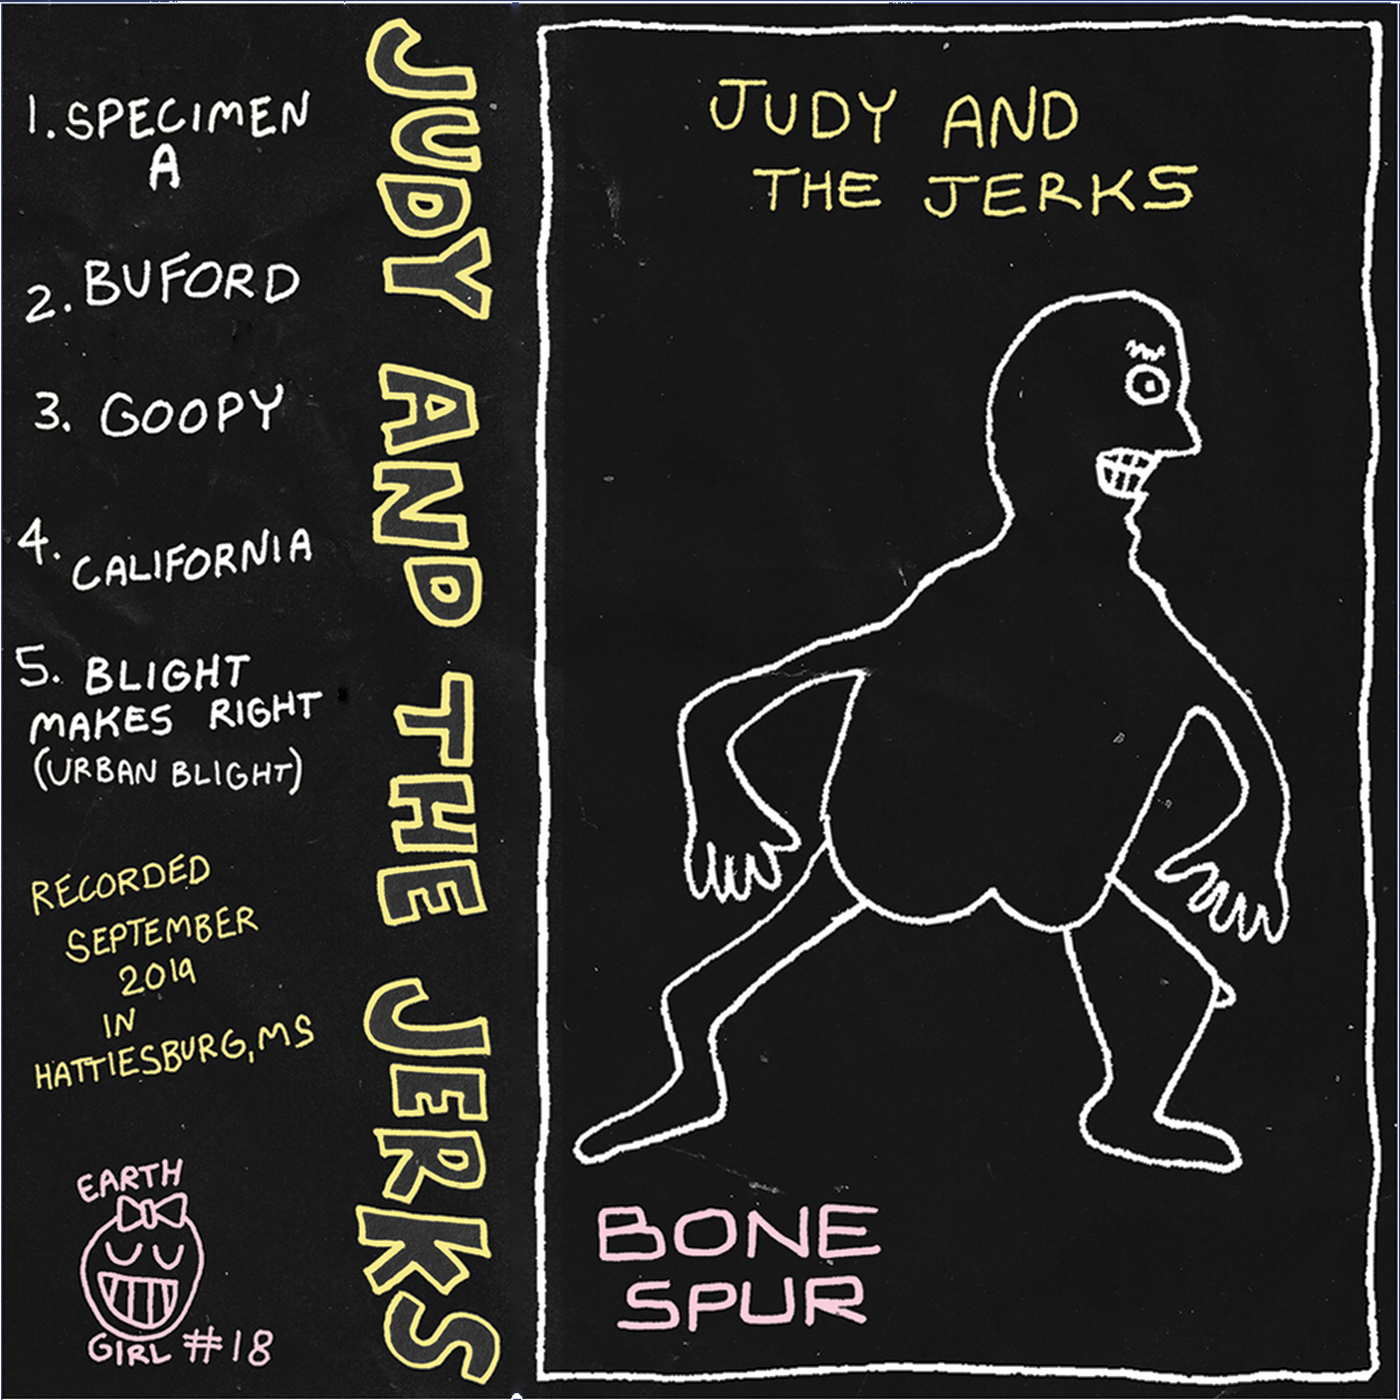 1. SPECIMEN
A
2. BUFORD
3. GOOPY
4. CALIFORNIA
5. BLIGHT
MAKES RIGHT
(URBAN BLIGHT)
RECORDED
SEPTEMBER
2019
IN
HATTIESBURG, MS
EARTH
GIRL #18
JUDY AND THE JERKS
JUDY AND
THE JERKS
BONE
SPUR